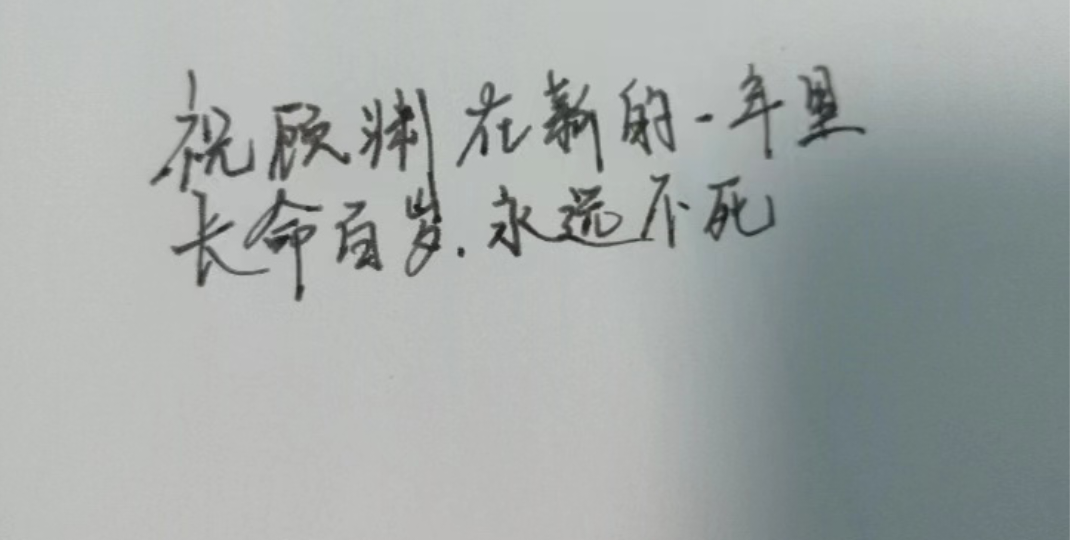 祝顾渊在新的一年里
长命百岁.永远不死